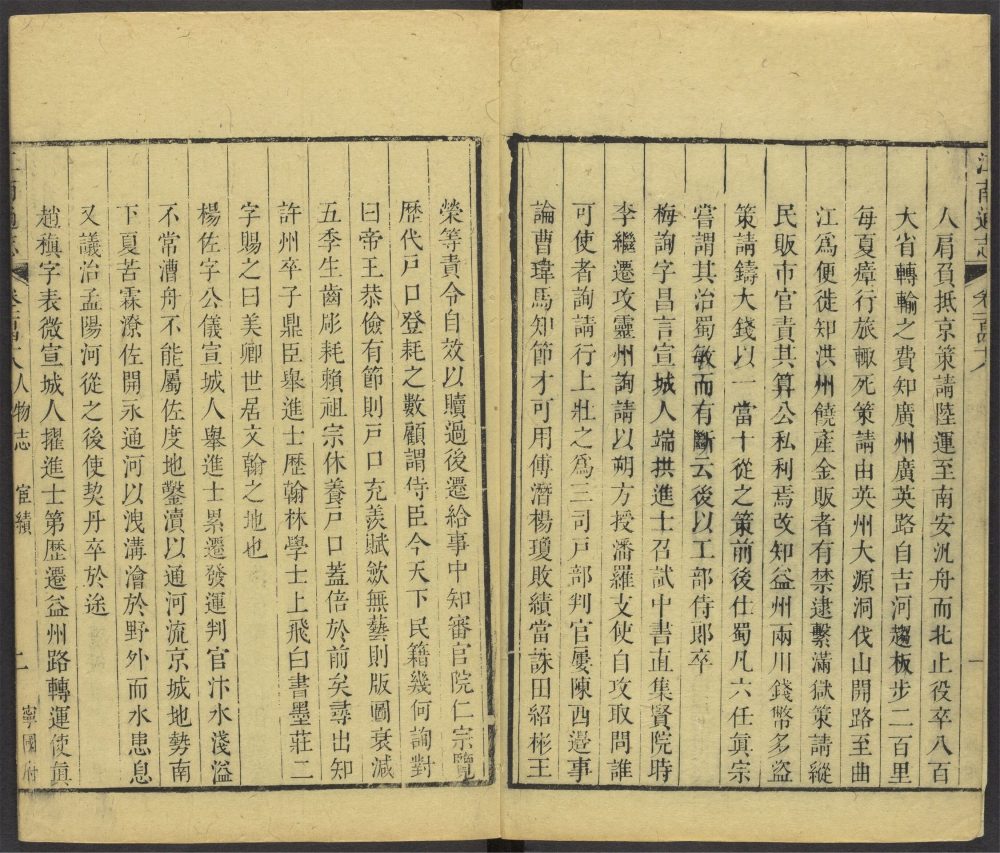 江南通志
卷一百四十八
一
人肩負抵京策請陸運至南安汎舟而北止役卒八百
大省轉輸之費知廣州廣英路自吉河趨板步二百里
每夏瘴行旅輙死策請由英州大源洞伐山開路至曲
江爲便徙知洪州饒產金販者有禁逮繫滿獄策請縱
民販市官責其算公私利焉改知益州兩川錢幣多盜
策請鑄大錢以一當十從之策前後仕蜀凡六任眞宗
嘗謂其治蜀敏而有斷云後以工部侍郎卒
梅詢字昌言宣城人端拱進士召試中書直集賢院時
李繼遷攻靈州詢請以朔方授潘羅支使自攻取問誰
可使者詢請行上壯之爲三司戸部判官屢陳西邊事
論曹瑋馬知節才可用傅潛楊瓊敗績當誅田紹彬王
榮等責令自效以贖過後遷給事中知審官院仁宗覽
歷代戸口登耗之數顧謂侍臣今天下民籍幾何詢對
曰帝王恭儉有節則戸口充羡賦歛無藝則版圖衰減
五季生齒彫耗賴祖宗休養戸口蓋倍於前矣尋出知
許州卒子鼎臣舉進士歷翰林學士上飛白書墨莊二
字賜之曰美卿世居文翰之地也
楊佐字公儀宣城人舉進士累遷發運判官汴水淺溢
不常漕舟不能屬佐度地鑿瀆以通河流京城地勢南
下夏苦霖潦佐開永通河以洩溝澮於野外而水患息
又議治孟陽河從之後使契丹卒於途
趙稹字表微宣城人擢進士第歷遷益州路轉運使眞
人物志 宦績
二
寧國府